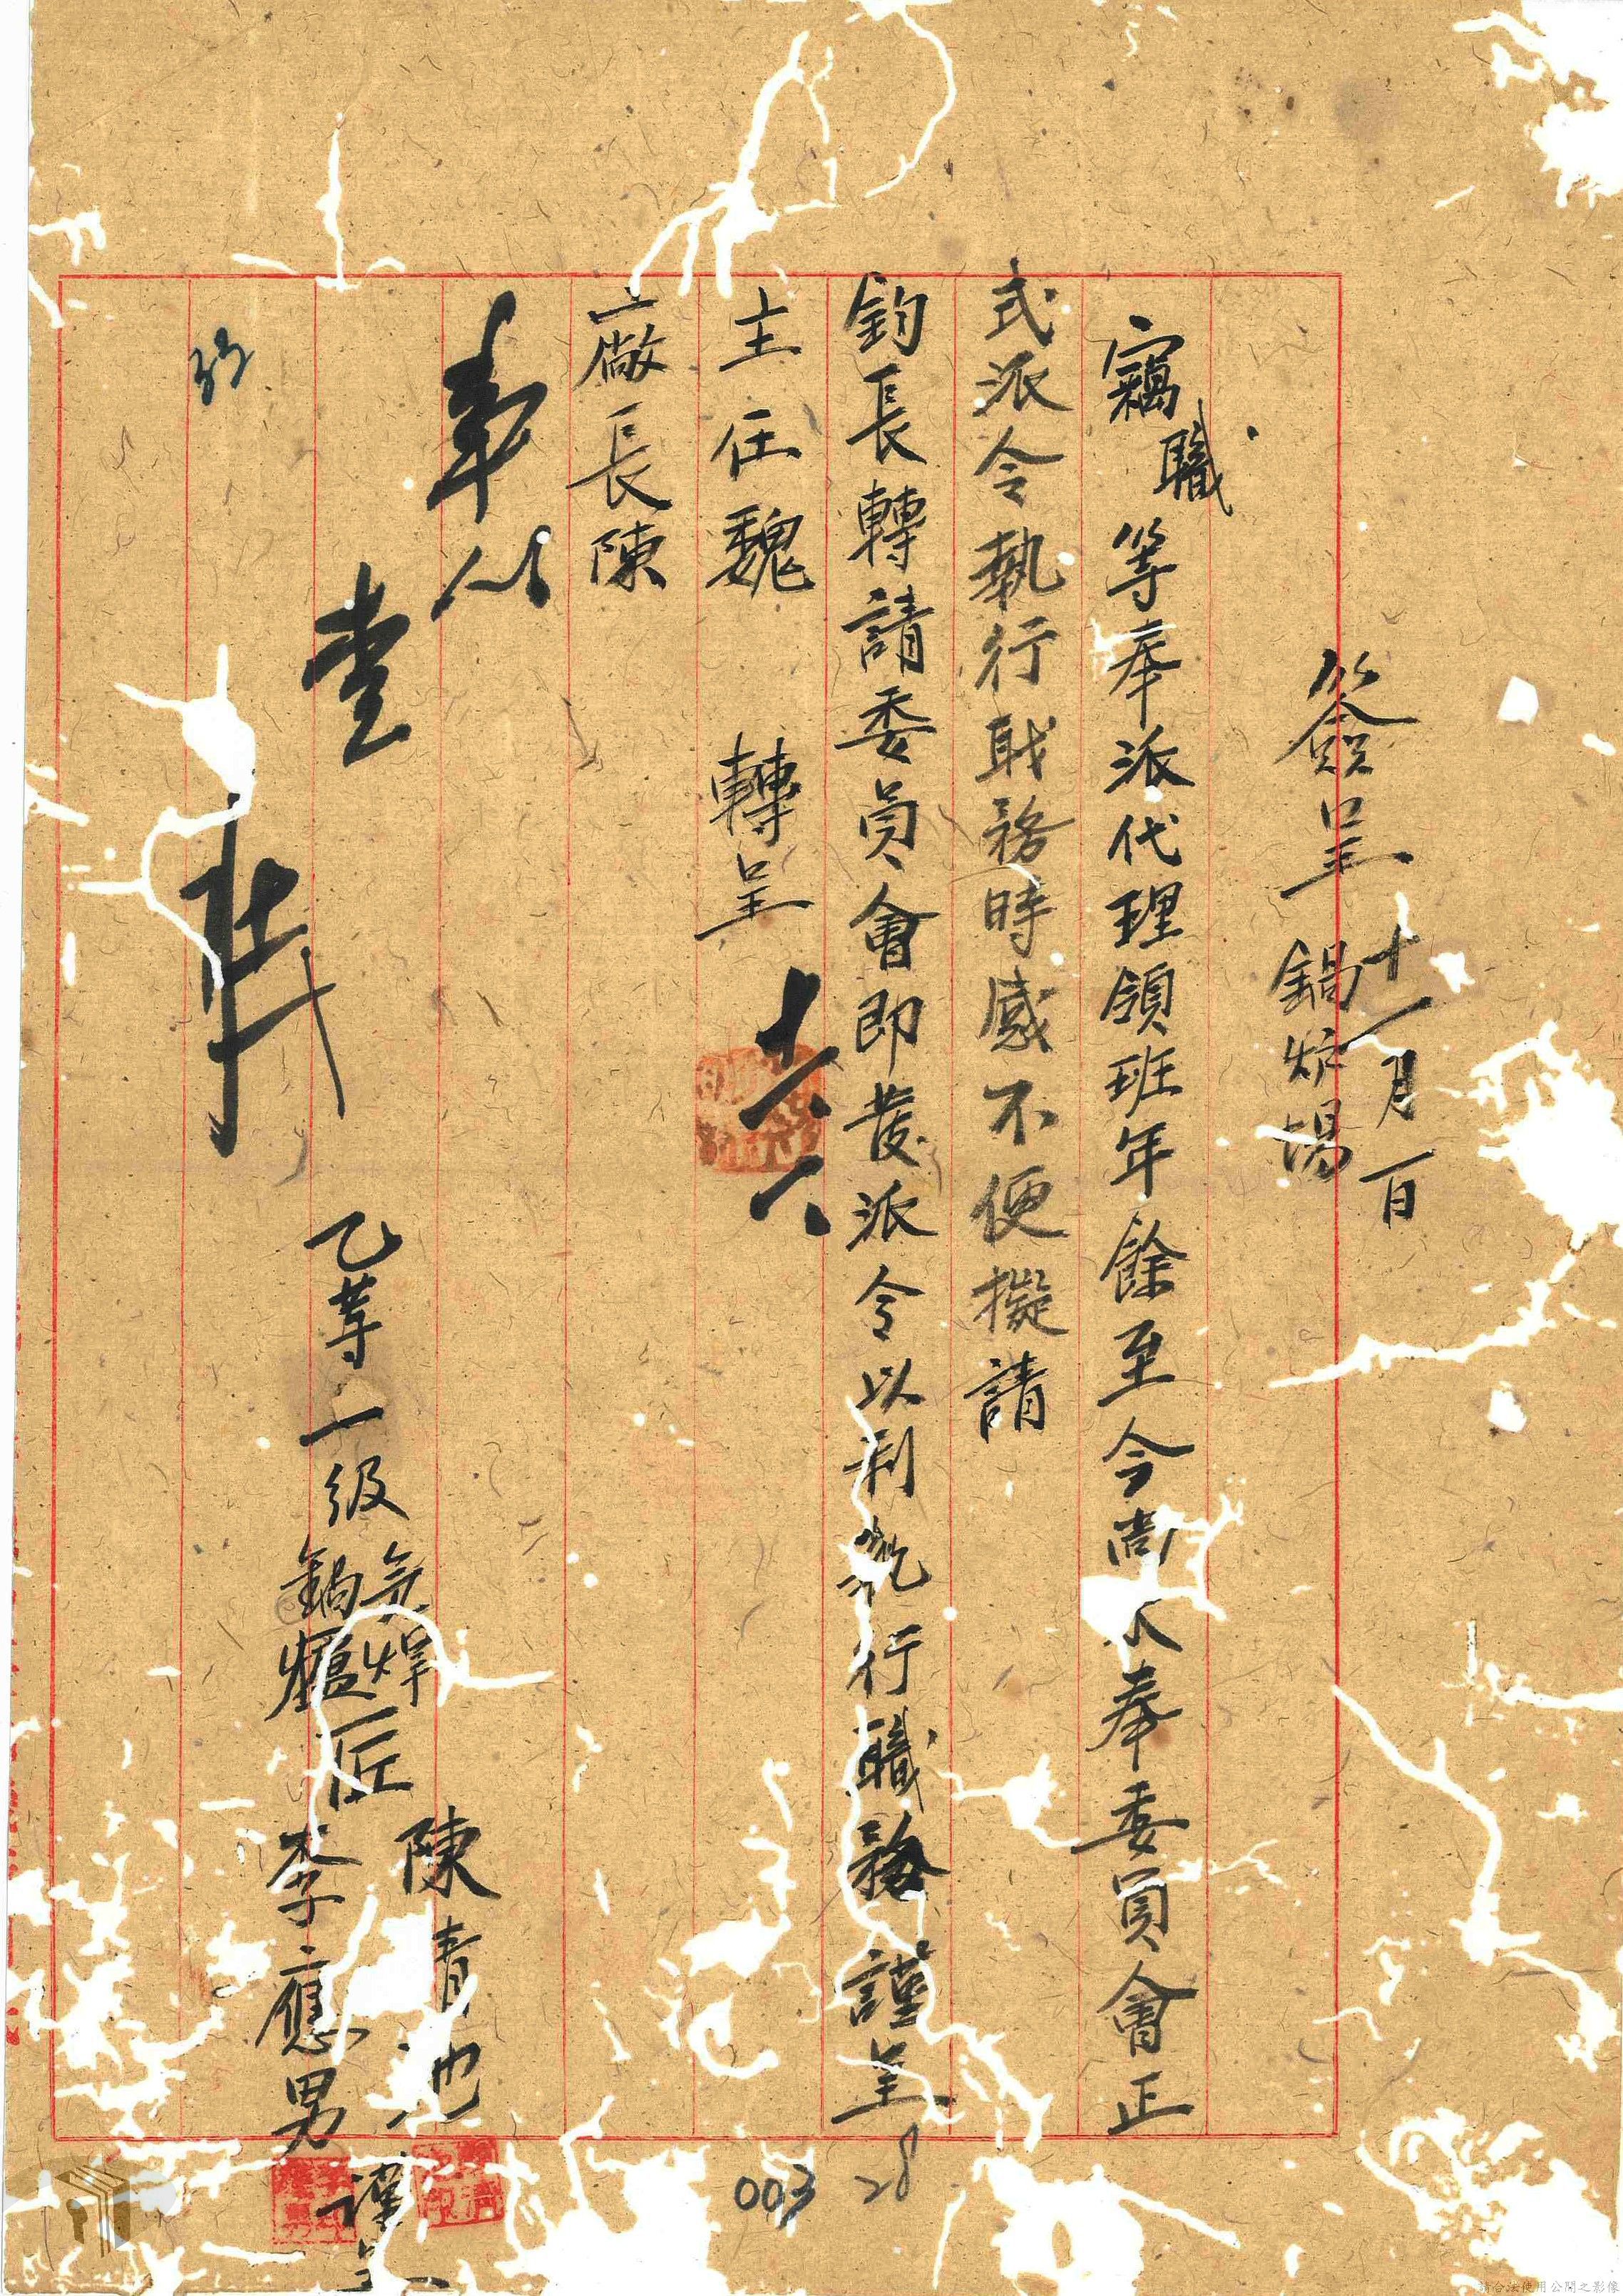 簽呈 十一月 日
鍋炉場
竊職等奉派代理領班年餘至今尚 奉委員會正
式派令執行戢務時感不便擬請
鈞長轉請委員會即發派令以利執行職務謹呈
主任魏 轉呈
廠長陳
乙等一級
氣焊
鍋爐
匠
陳青池
李應男
謹呈
28
003
請合法使用公開之影像